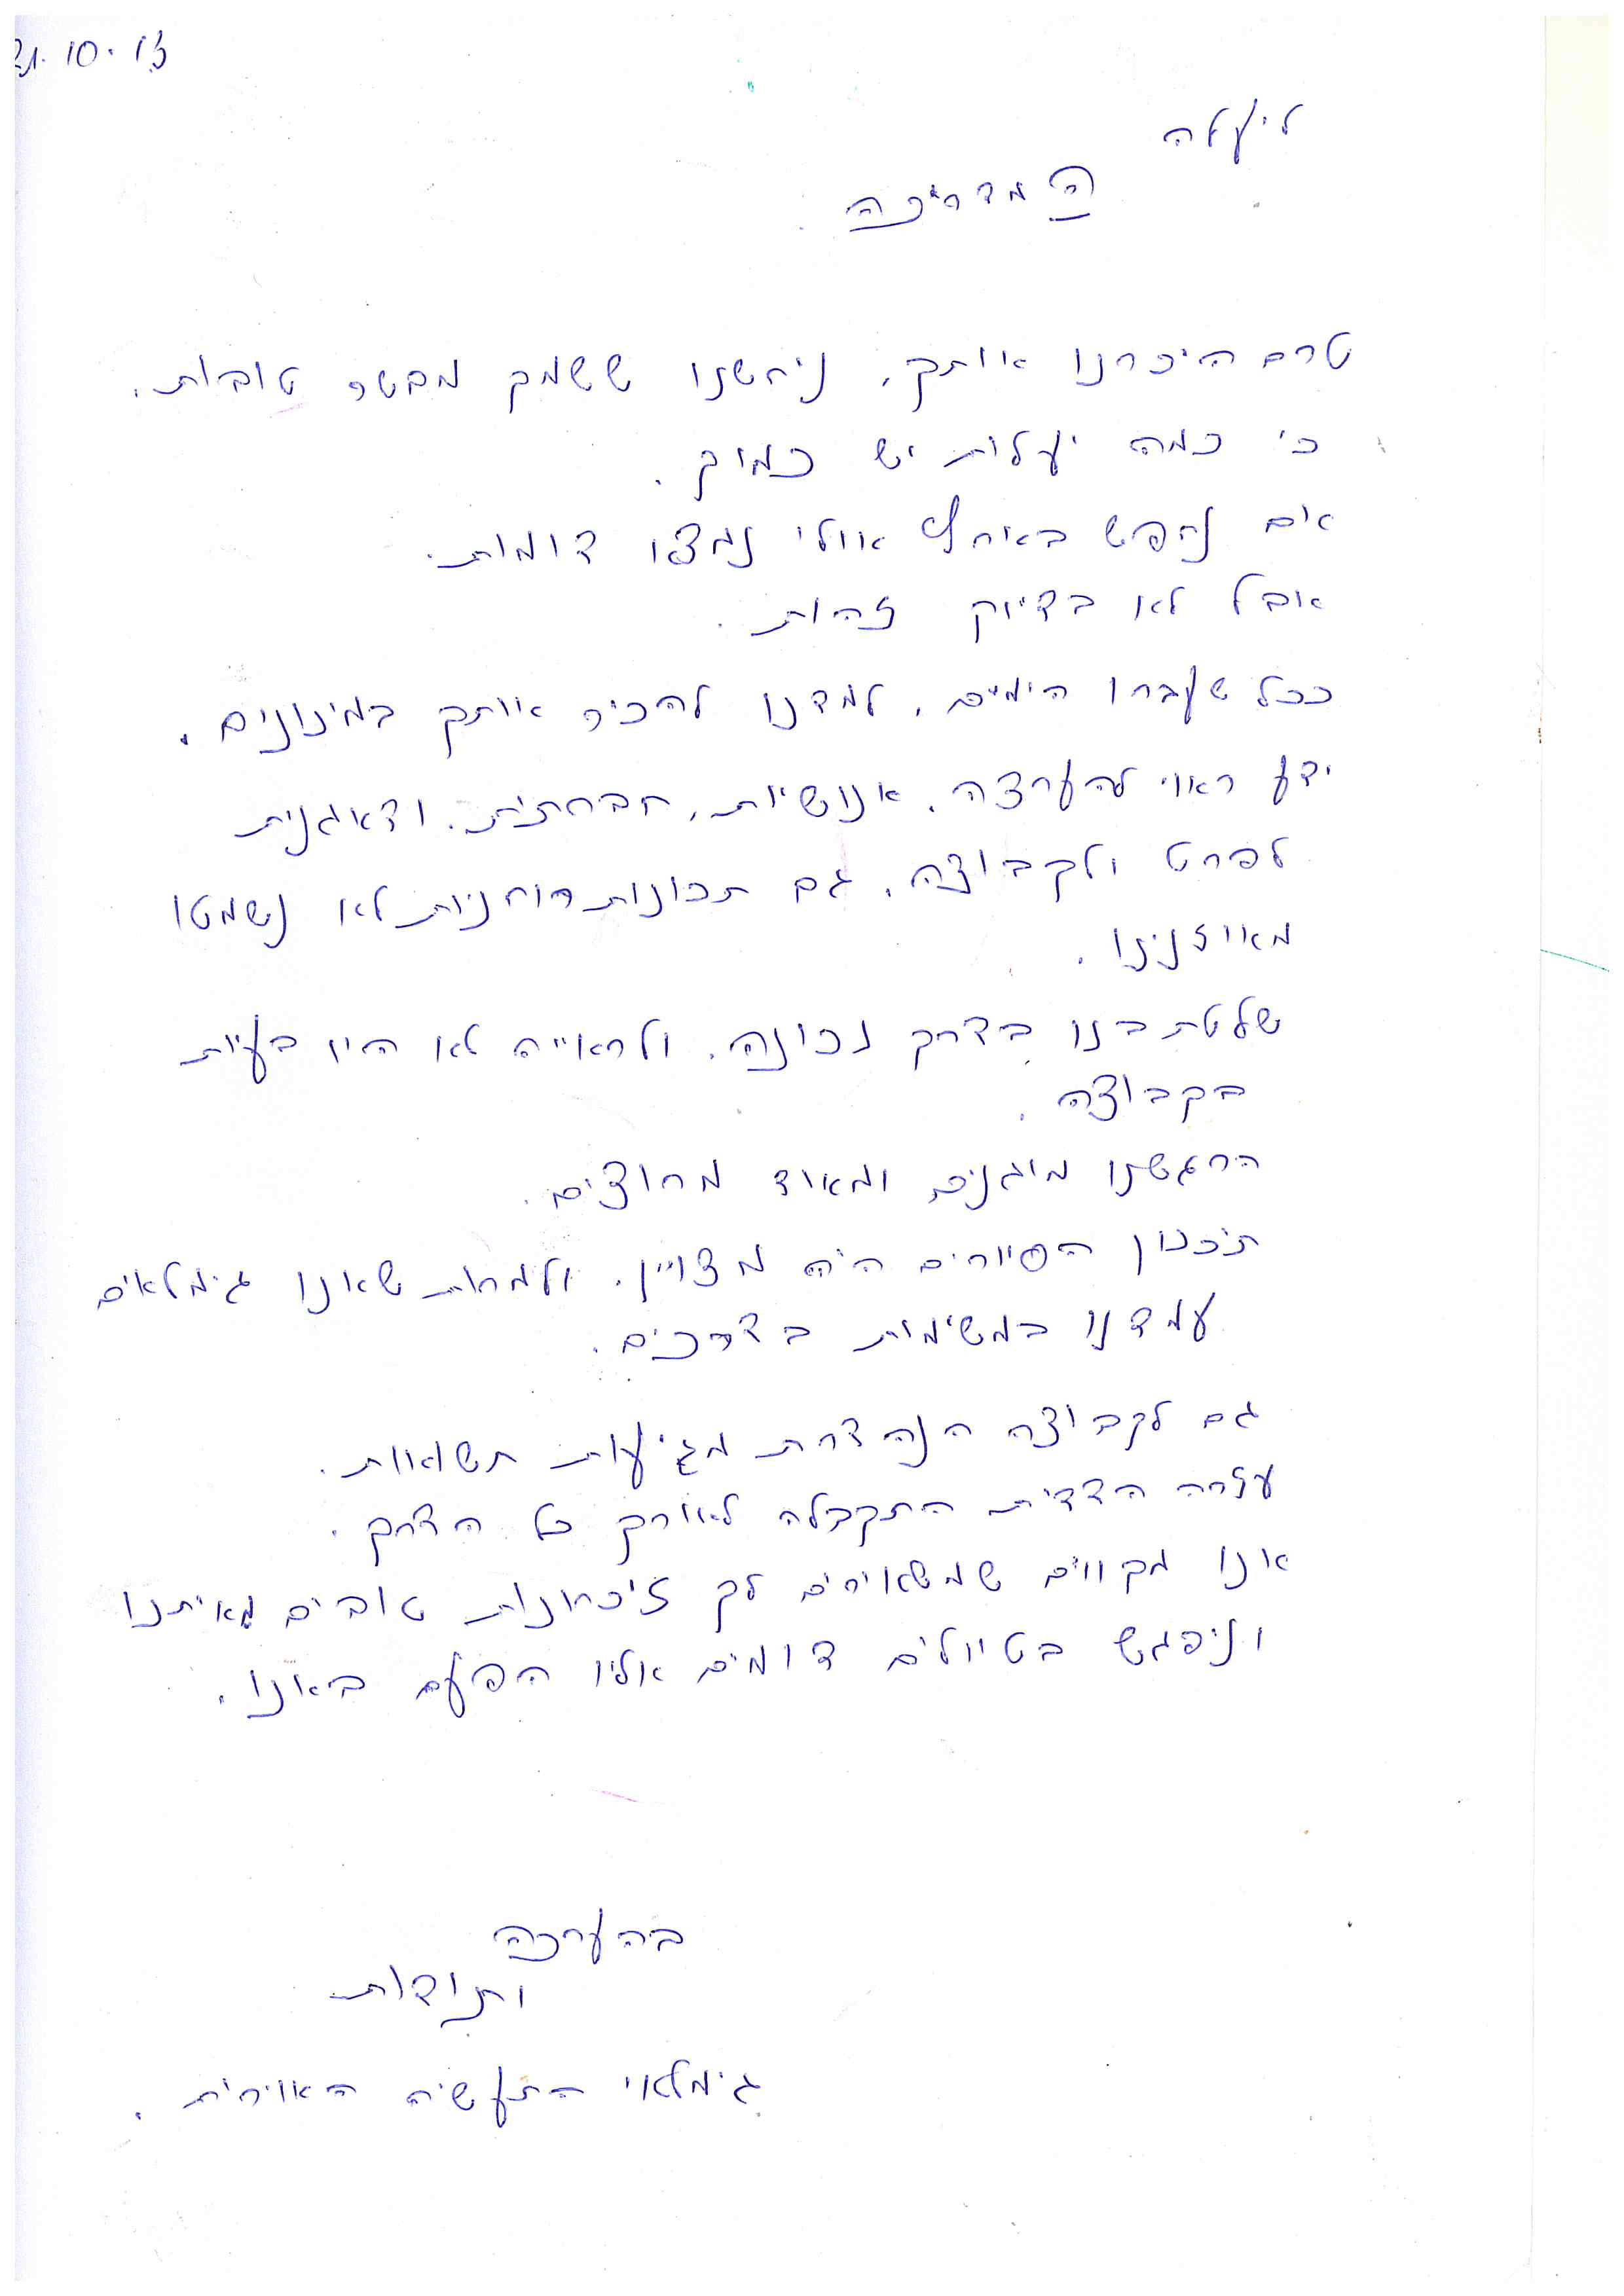 21.10.13
ליעלה
המדריכה
טרם היכרנו אותך, ניחשנו ששמך מבשר טובות.
כי כמה יעלות יש כמוך.
אם נחפש בארץ אולי נמצא דומות.
אבל לא בדיוק זהות.
ככל שעברו הימים, למדנו להכיר אותך במינונים.
ידע ראוי להערצה, אנושיות, חברתית, ודאגנית
לפרט ולקבוצה, גם תכונות רוחניות לא נשמטו
מאוזנינו.
שלטת בנו בדרך נכונה. ולראייה לא היו בעיות
בקבוצה.
הרגשנו מוגנים ומאוד מרוצים.
תיכנון הסיורים היה מצויין. ולמרות שאנו גימלאים
עמדנו במשימות בדרכים.
גם לקבוצה הנהדרת מגיעות תשואות.
עזרה הדדית התקבלה לאורך כל הדרך.
אנו מקווים שמשאירים לך זיכרונות טובים מאיתנו
וניפגש בטיולים דומים אליו הפעם באנו.
בהערכה
ותודות
גימלאי התעשיה האוירית.